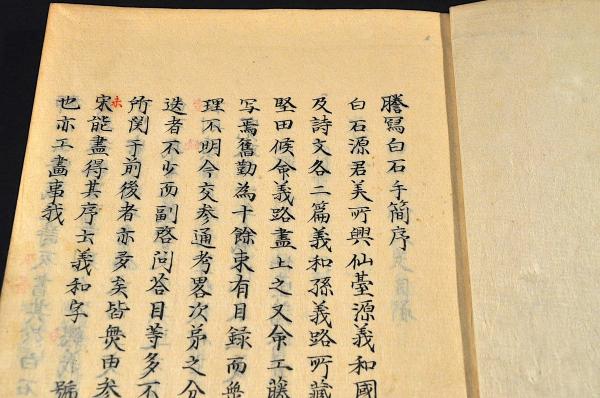 謄寫白石手簡序
白石源君美所與仙臺源義和國
及詩文各二篇義和孫義路所藏
堅田候命義路盡上之又命工藤
写焉舊勤為十餘束有目録而無
理不明今交参通考畧次第之分
迭者不少而副啓問荅目等多不
所関于前後者亦多矣皆無由参
未能盡得其序士義和字 號
也亦工畵事我
未